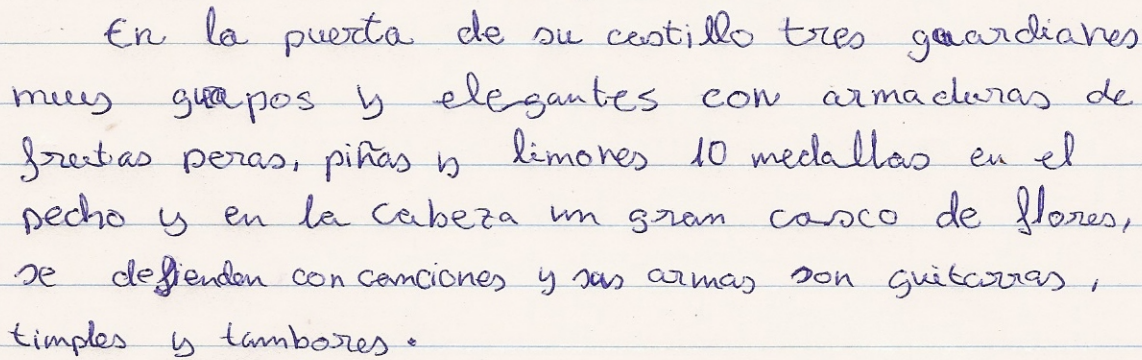 En la puerta de su castillo tres guardianes
muy guapos y elegantes con armaduras de
frutas peras, piñas y limones 10 medallas en el
pecho y en la cabeza un gran casco de flores,
se defienden con canciones y sus armas son guitarras,
timples y tambores.